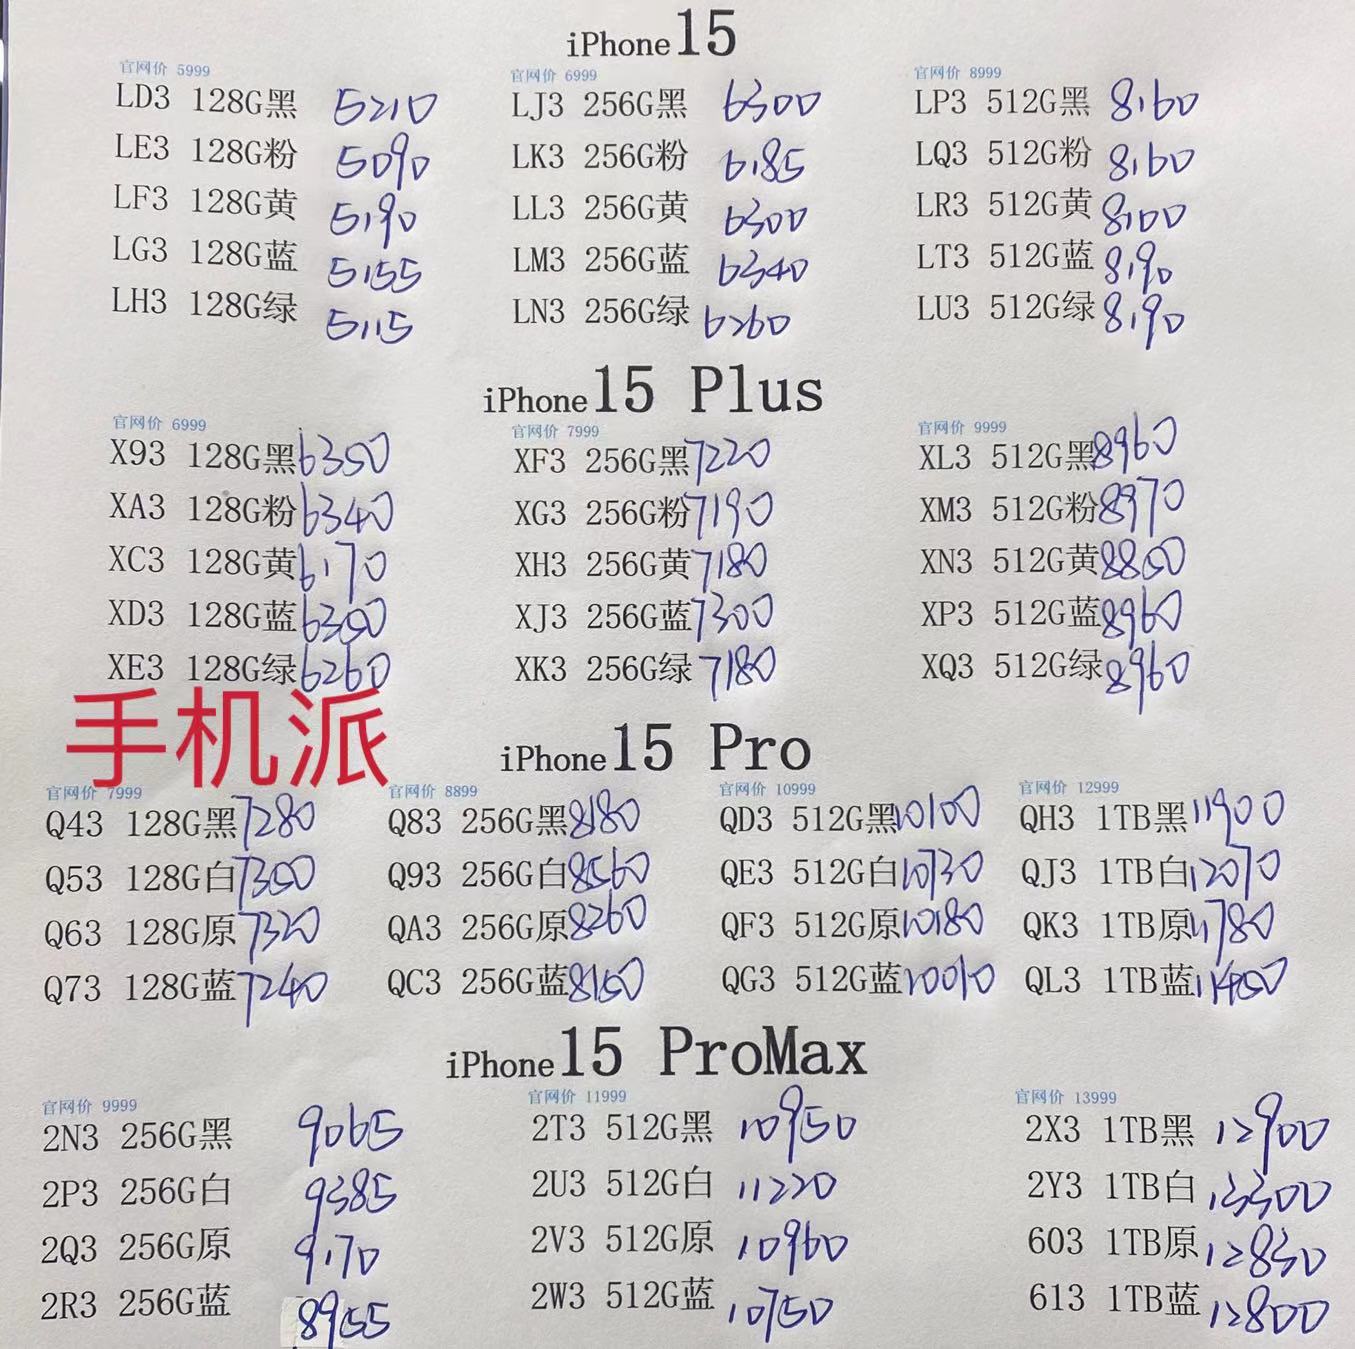 iPhone15
官网价 5999 官网价 6999 官网价 8999
LD3 128G黑 5210 LJ3 256G黑 6300 LP3 512G黑 8160
LE3 128G粉 5090 LK3 256G粉 6185 LQ3 512G粉 8160
LF3 128G黄 5190 LL3 256G黄 6300 LR3 512G黄 8100
LG3 128G蓝 5155 LM3 256G蓝 6340 LT3 512G蓝 8190
LH3 128G绿 5115 LN3 256G绿 6260 LU3 512G绿 8190
iPhone15 Plus
官网价 6999 官网价 7999 官网价 9999
X93 128G黑 6350 XF3 256G黑 7220 XL3 512G黑 8960
XA3 128G粉 6340 XG3 256G粉 7190 XM3 512G粉 8970
XC3 128G黄 6170 XH3 256G黄 7180 XN3 512G黄
XD3 128G蓝 XJ3 256G蓝 7300 XP3 512G蓝 8960
XE3 128G绿 6260 XK3 256G绿 7180 XQ3 512G绿 8960
手机派
iPhone15 Pro
官网价 7999 官网价 8899 官网价 10999 官网价 12999
Q43 128G黑 7280 Q83 256G黑 8180 QD3 512G黑 10100 QH3 1TB黑 11900
Q53 128G白 Q93 256G白 8560 QE3 512G白 10730 QJ3 1TB白 12070
Q63 128G原 7320 QA3 256G原 8260 QF3 512G原 10180 QK3 1TB原 11780
Q73 128G蓝 7240 QC3 256G蓝 QG3 512G蓝 10010 QL3 1TB蓝
iPhone15 ProMax
官网价 9999 官网价 11999 官网价 13999
2N3 256G黑 9065 2T3 512G黑 10950 2X3 1TB黑 12900
2P3 256G白 9385 2U3 512G白 11220 2Y3 1TB白 13300
2Q3 256G原 9170 2V3 512G原 10960 603 1TB原 12830
2R3 256G蓝 8955 2W3 512G蓝 10750 613 1TB蓝 12800